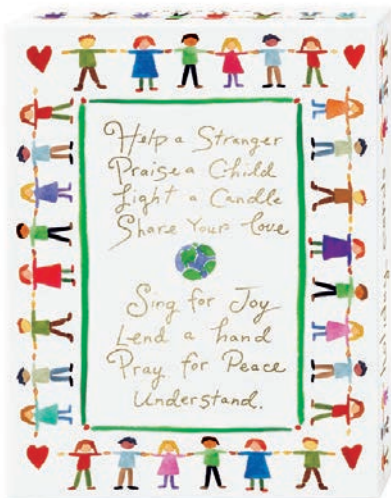 Help a Stranger
Praise a Child
Light a Candle
Share Your love
Sing for Joy
Lend a hand
Pray for Peace
Understand.